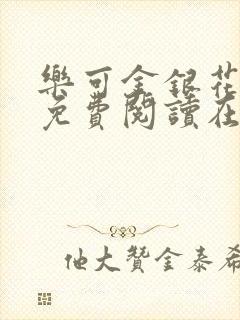 樂可金銀花
免費閱讀在
他大贊金泰希